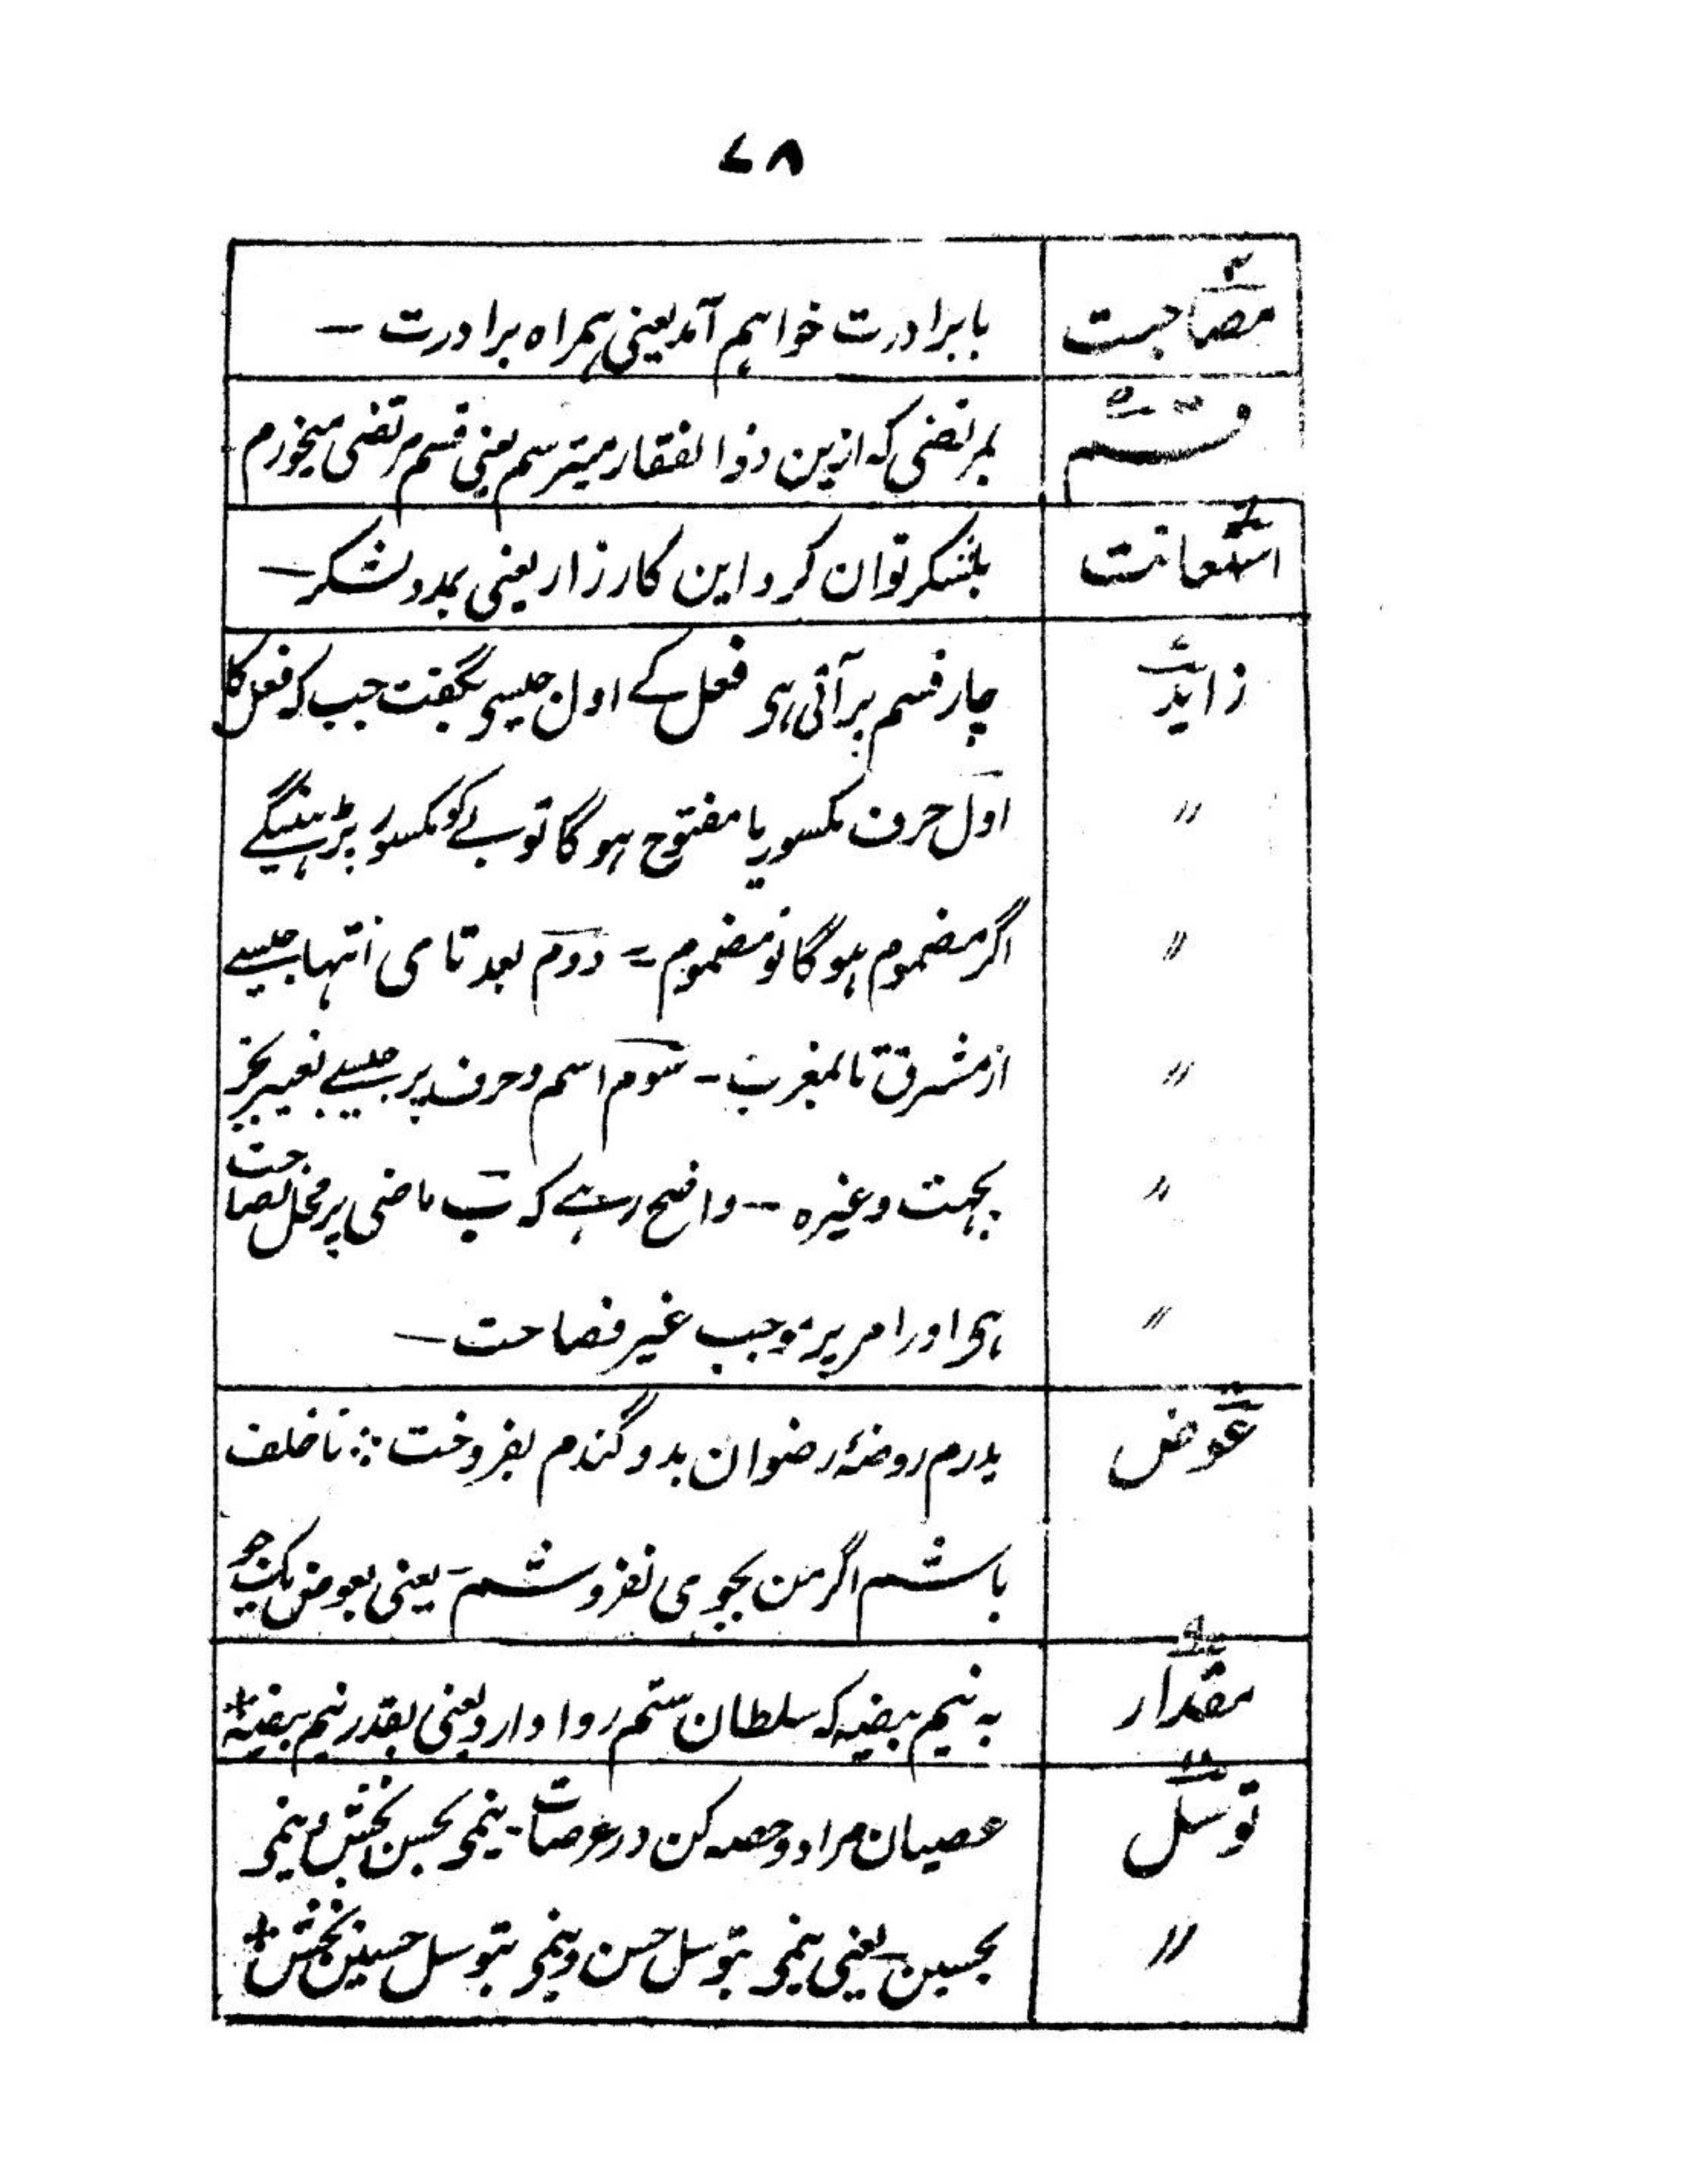 ۷۸
مصاحبت ۴ بابرادرت خواہم آمد یعنی ہمراہ برادرت –
قسم ۵ بمرتضی کہ ازین ذوالفقار میترسم یعنی قسم مرتضی میخورم
استعانت ۶ بلشکر توان کرد این کارزار یعنی بمدد لشکر –
زاید چار قسم پر آتی ہی فعل کے اول جیسی بگفت جب کہ فعل کا
〃 اول حرف مکسور یا مفتوح ہوگا تو بے کو مکسور پڑہینگے
〃 اگر مضموم ہوگا تو مضموم – دوم بعد تا می انتہا جیسے
〃 از مشرق تا بمغرب – سوم اسم و حرف پر جیسے بغیر بجز
〃 بجہت وغیرہ – واضح رہے کہ ب ماضی پر مخل فصاحت
〃 ہی اور امر پر موجب غیر فصاحت –
عوض پدرم روضۂ رضوان بدو گندم بفروخت ؞ ناخلف
باشم اگر من بجوی نفروشم – یعنی بعوض یک جو
مقدار بہ نیم بیضہ کہ سلطان ستم روا دارد یعنی بقدر نیم بیضہ *
توسل عصیان مرا دو حصہ کن در عرصات – نیمی بحسن بخش و نیمی
〃 بحسین – یعنی نیمی بتوسل حسن و نیمی بتوسل حسین بخش *